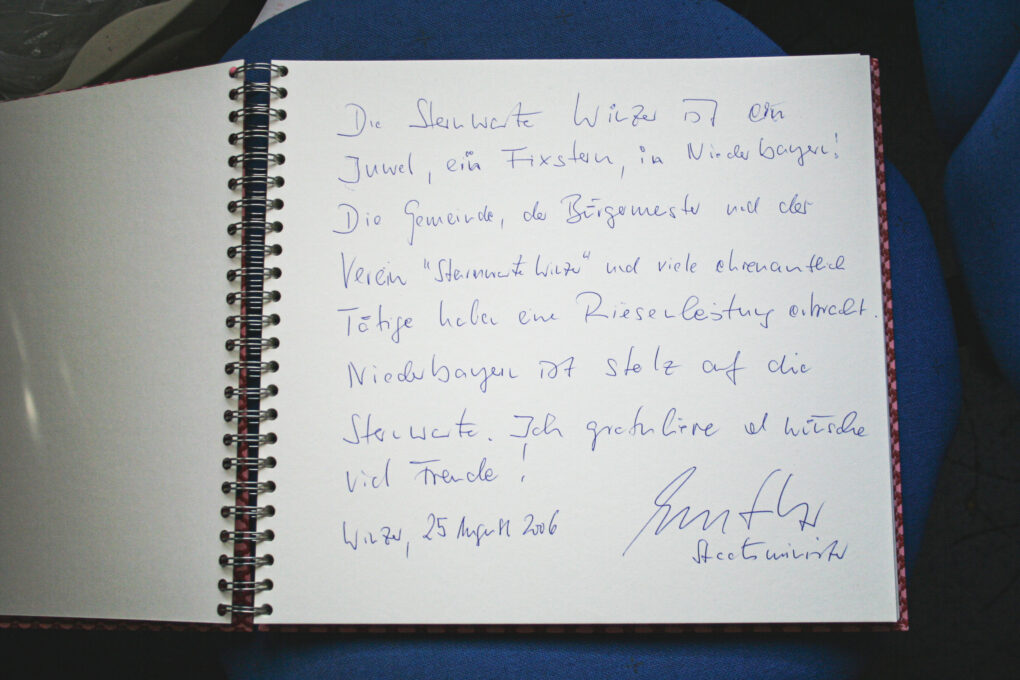 Die Sternwarte Winzer ist ein
Juwel, ein Fixstern, in Niederbayern!
Die Gemeinde, der Bürgermeister und der
Verein "Sternwarte Winzer" und viele ehrenamtlich
Tätige haben eine Riesenleistung erbracht.
Niederbayern ist stolz auf die
Sternwarte. Ich gratuliere und wünsche
viel Freude!
Winzer, 25 August 2006
Staatsminister